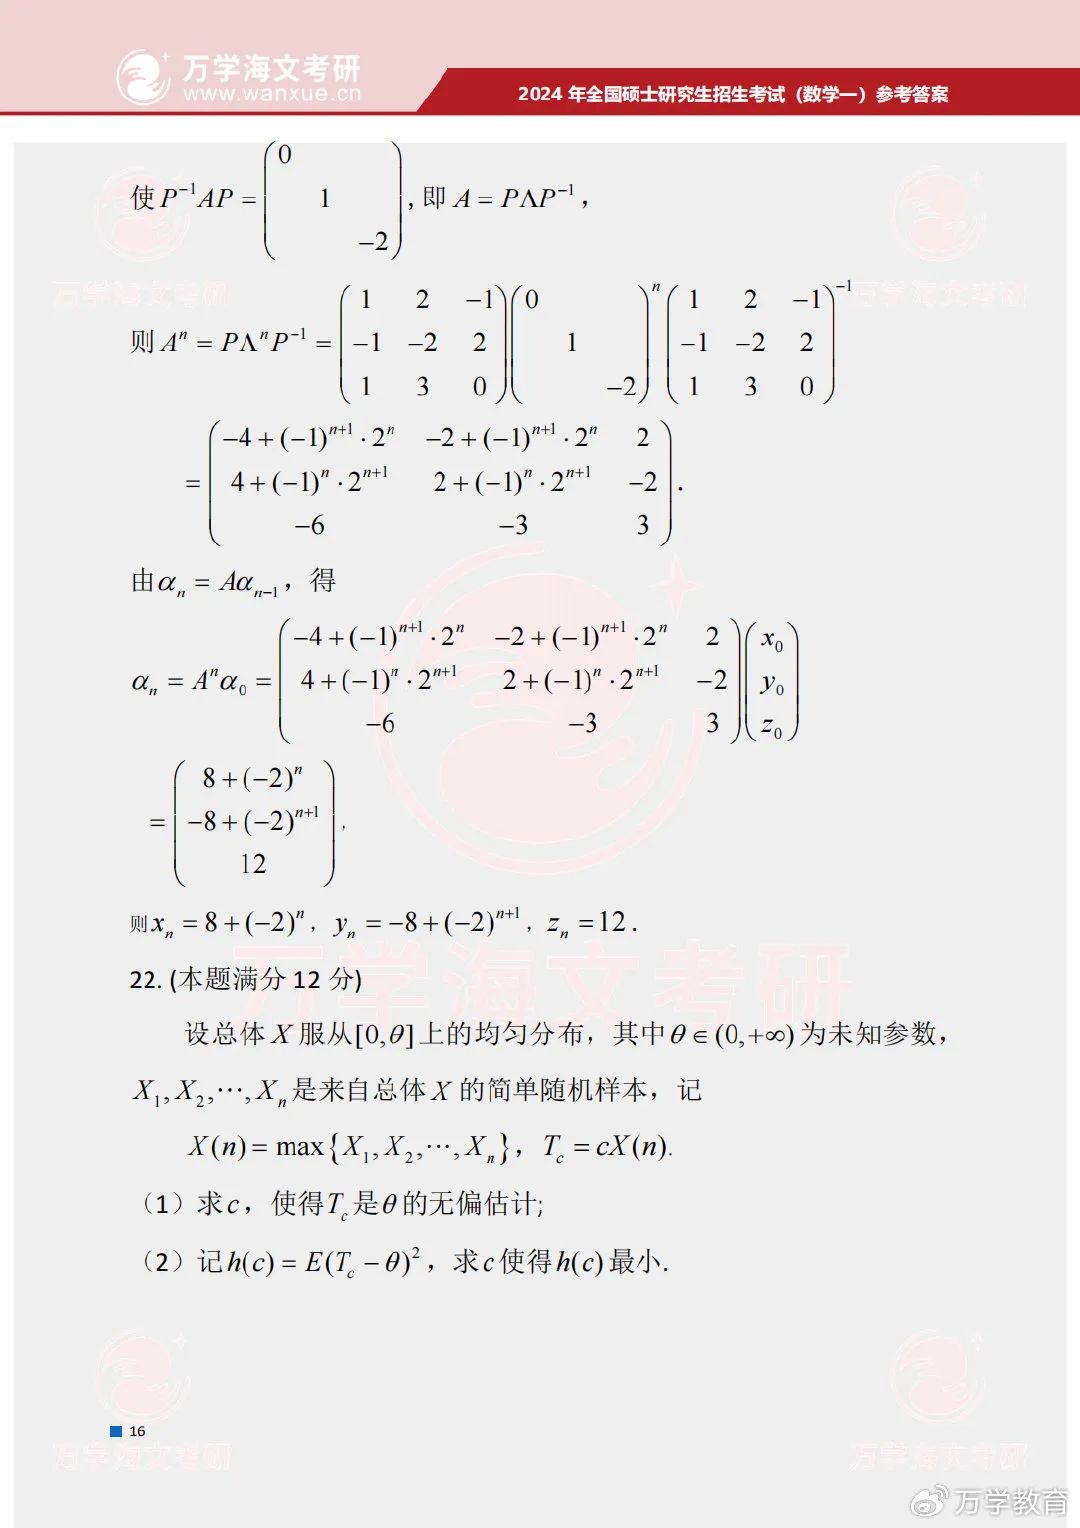 万学海文考研
www.wanxue.cn
2024 年全国硕士研究生招生考试（数学一）参考答案
使 P⁻¹AP = (0 1 −2), 即 A = PΛP⁻¹，
则 Aⁿ = PΛⁿP⁻¹ = (1 2 −1; −1 −2 2; 1 3 0)(0 1 −2)ⁿ(1 2 −1; −1 −2 2; 1 3 0)⁻¹
= (−4+(−1)ⁿ⁺¹·2ⁿ −2+(−1)ⁿ⁺¹·2ⁿ 2; 4+(−1)ⁿ·2ⁿ⁺¹ 2+(−1)ⁿ·2ⁿ⁺¹ −2; −6 −3 3).
由αₙ = Aαₙ₋₁，得
αₙ = Aⁿα₀ = (−4+(−1)ⁿ⁺¹·2ⁿ −2+(−1)ⁿ⁺¹·2ⁿ 2; 4+(−1)ⁿ·2ⁿ⁺¹ 2+(−1)ⁿ·2ⁿ⁺¹ −2; −6 −3 3)(x₀; y₀; z₀)
= (8+(−2)ⁿ; −8+(−2)ⁿ⁺¹; 12),
则 xₙ = 8+(−2)ⁿ，yₙ = −8+(−2)ⁿ⁺¹，zₙ = 12.
22. (本题满分 12 分)
设总体 X 服从[0,θ]上的均匀分布，其中θ∈(0,+∞)为未知参数，
X₁,X₂,⋯,Xₙ是来自总体 X 的简单随机样本，记
X(n) = max{X₁,X₂,⋯,Xₙ}，T_c = cX(n).
（1）求c，使得T_c是θ的无偏估计;
（2）记h(c) = E(T_c − θ)²，求c使得h(c)最小.
16
万学教育